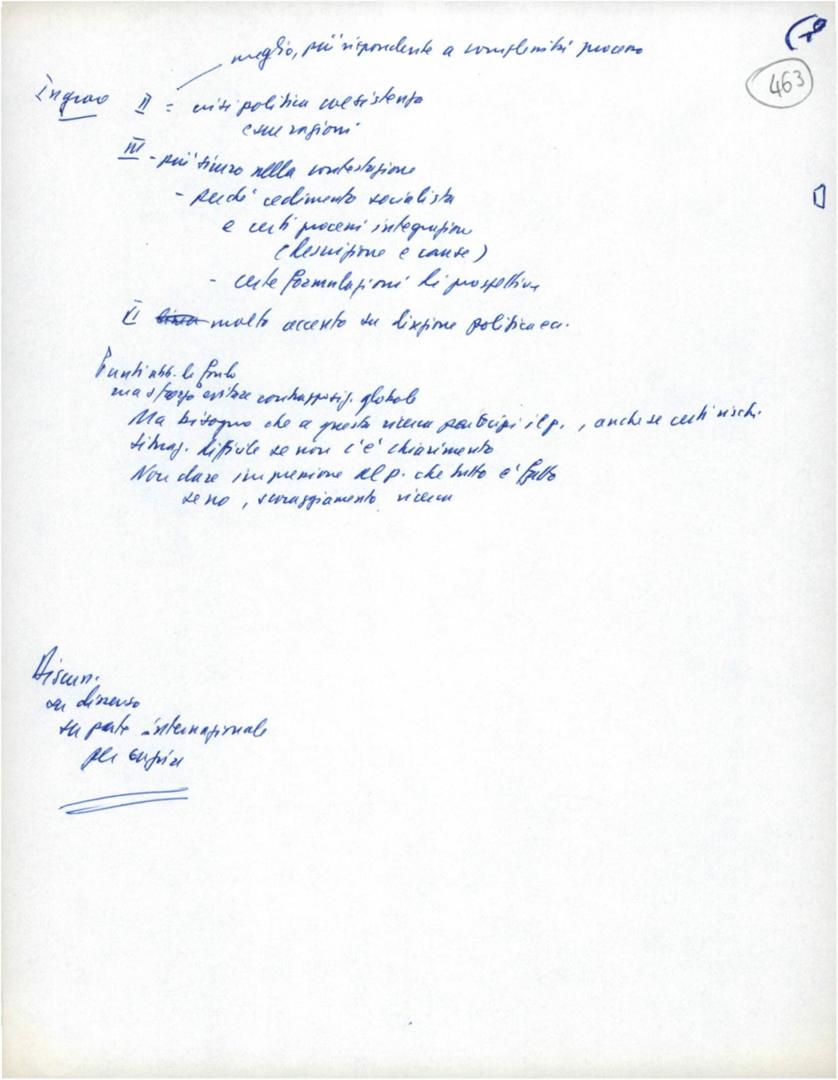 463
meglio, più rispondente a complessità processo
Ingrao II = crisi politica coesistenza
e sue ragioni
III - più sicuro nella contestazione
- perché cedimento socialista
e certi processi integrazione
(descrizione e cause)
- certe formulazioni di prospettiva
molto accento su direzione politica ec.
Punti abb. di fondo
ma sforzo evitare contrapposiz. globale
Ma bisogna che a questa ricerca partecipi il p., anche se certi rischi.
Situaz. difficile se non c'è chiarimento
Non dare impressione al p. che tutto è fatto
se no, scoraggiamento ricerca
Discuss.
su discorso
su parte internazionale
per